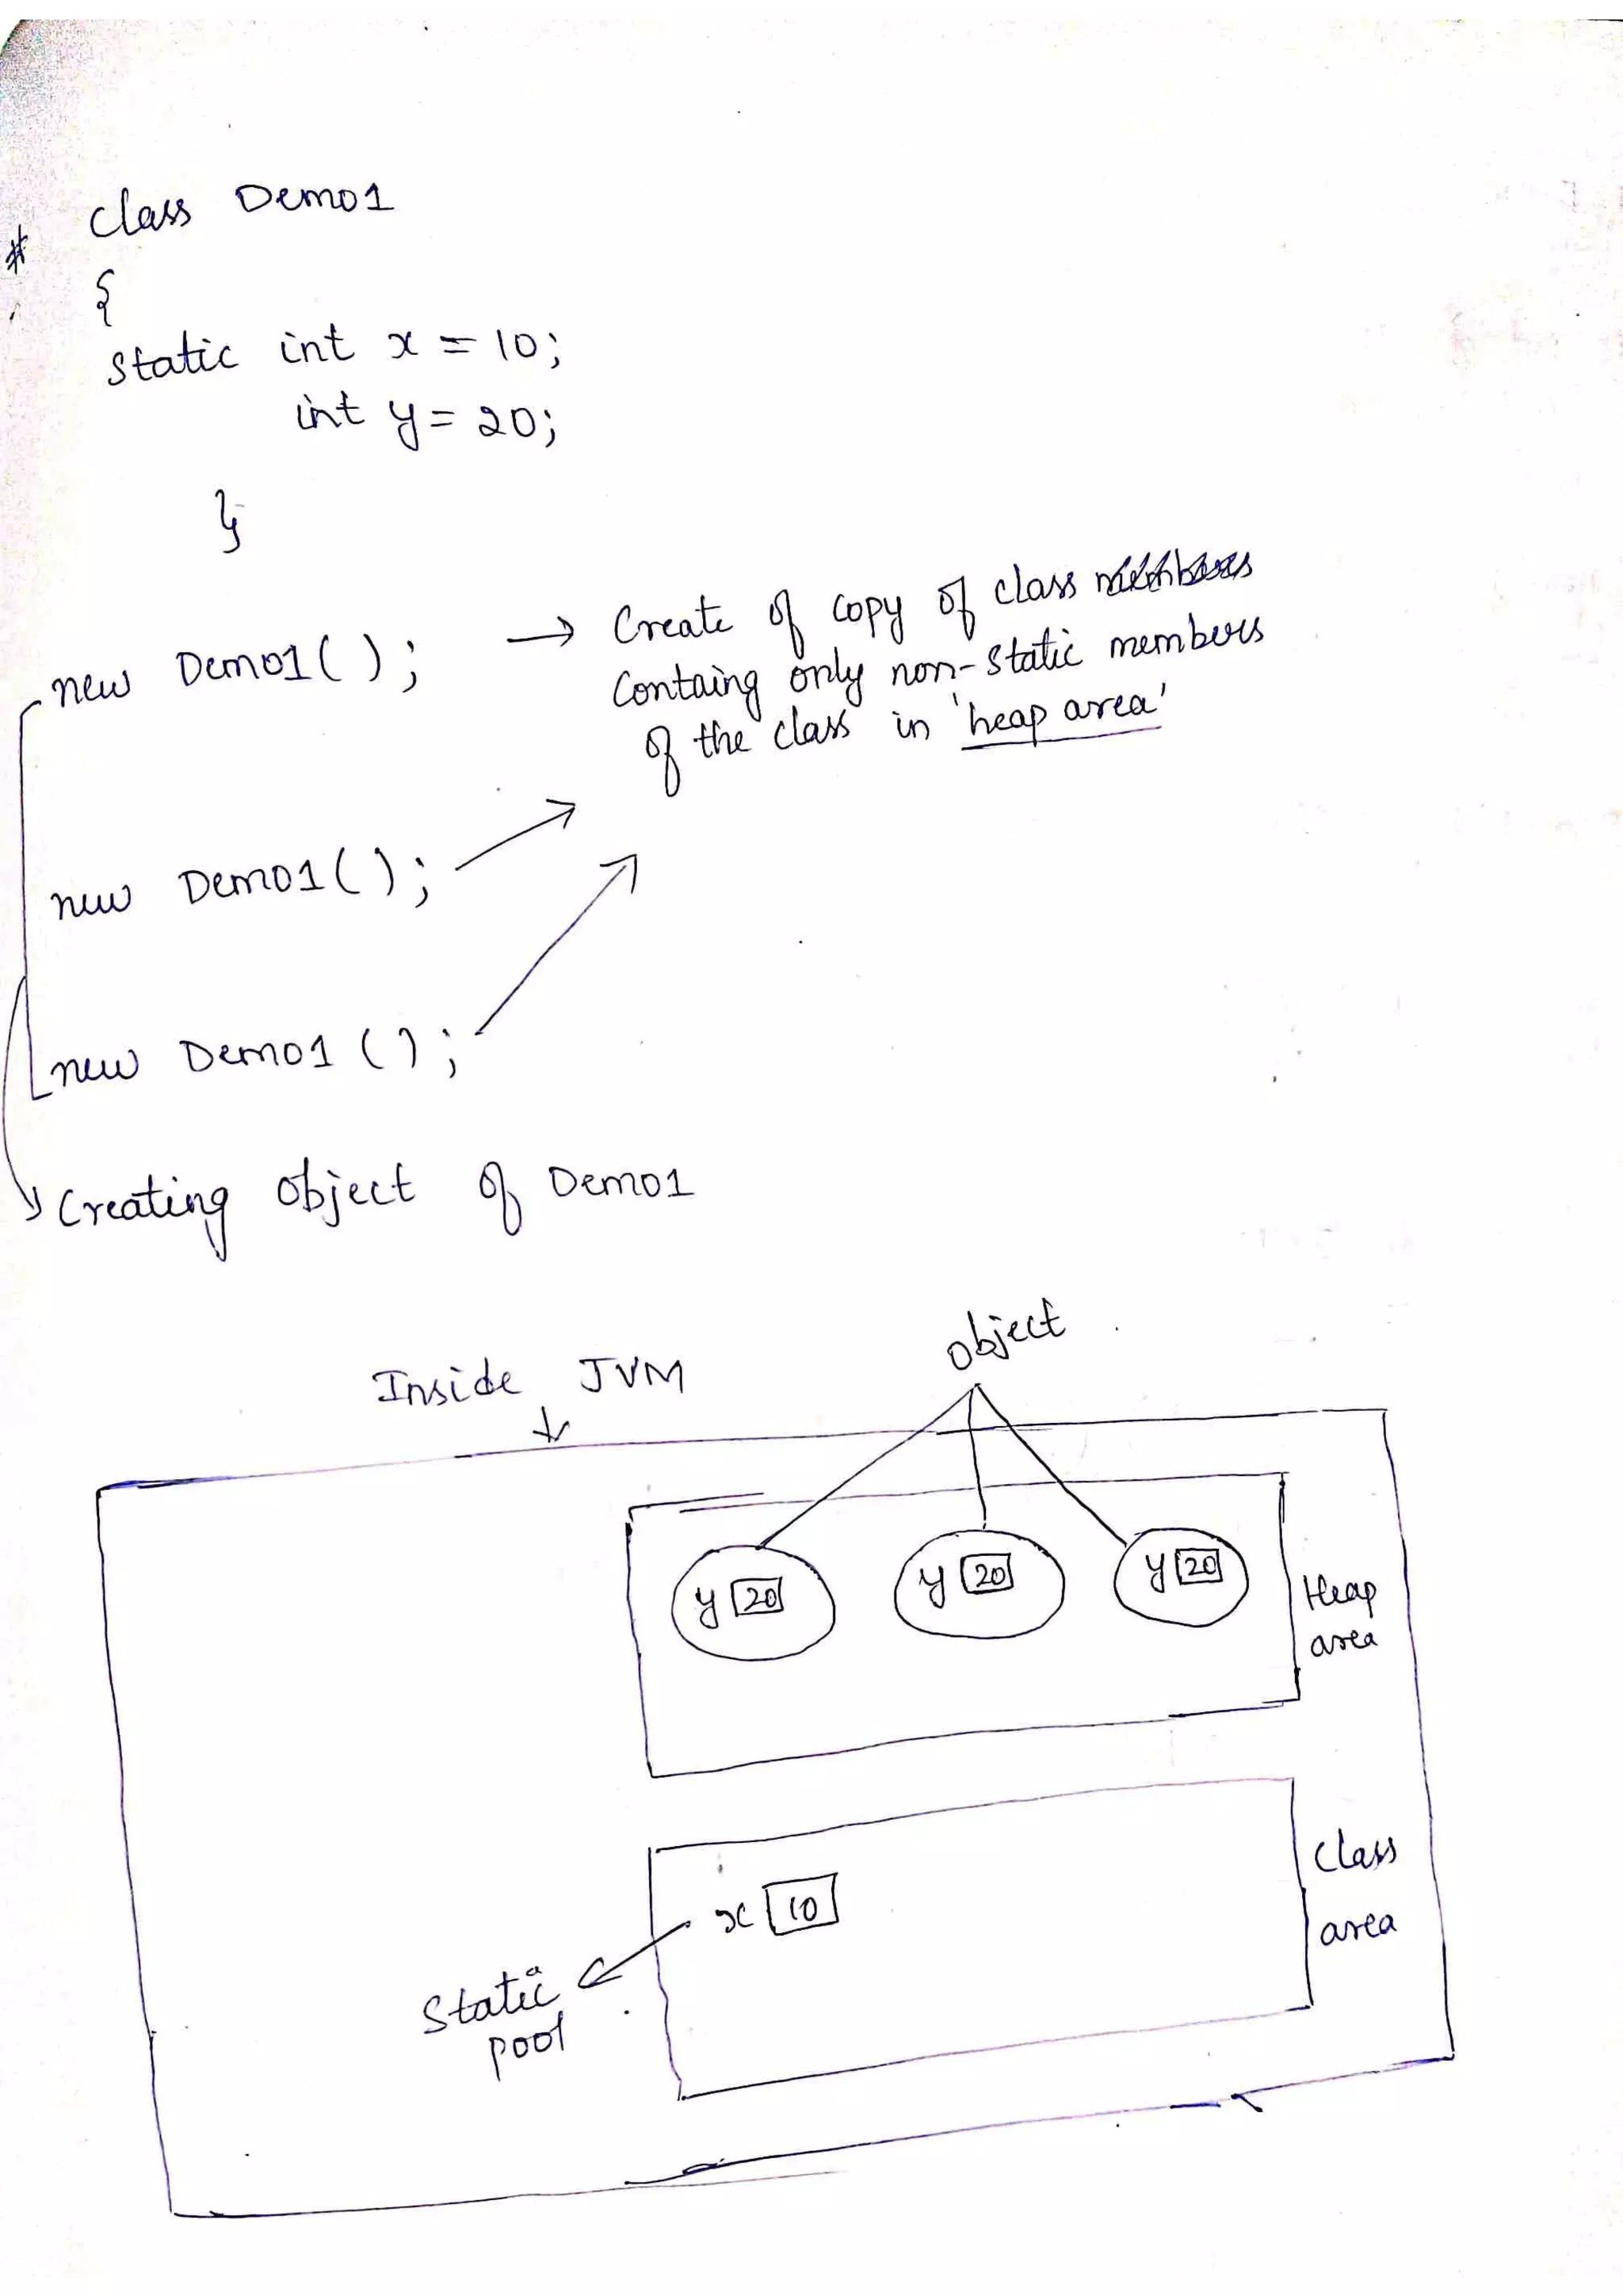 * class Demo1
{
static int x = 10;
int y = 20;
}
new Demo1( ); → Create of copy of class
Containg only non-static members
of the class in 'heap area'
new Demo1( );
new Demo1 ( );
Creating object of Demo1
object
Inside JVM
y 20 y 20 y 20
Heap
area
Class
x 10
area
Static
pool